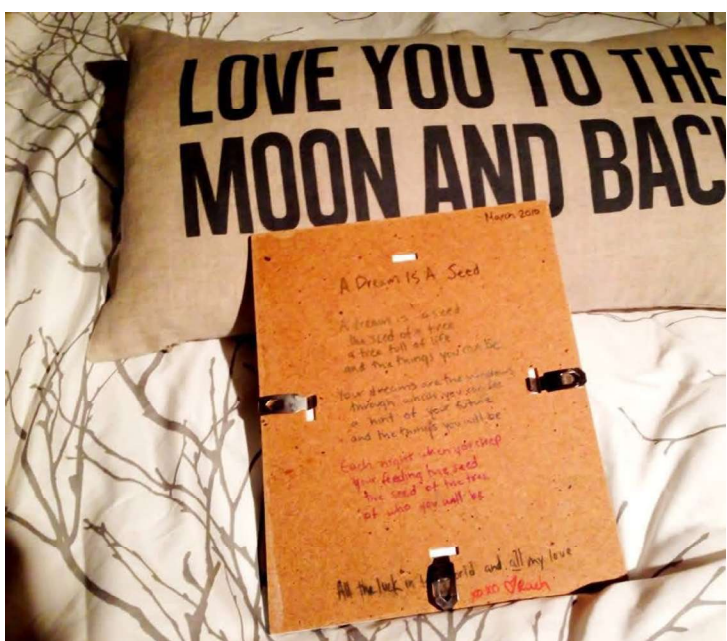 LOVE YOU TO THE
MOON AND BAC
March 2010
A Dream Is A Seed
A dream is a seed
the seed of a tree
a tree full of life
and the things you can be
Your dreams are the windows
through which you can see
a hint of your future
and the things you will be
Each night when you sleep
your feeding the seed
the seed of the tree
of who you will be
All the luck in the world and all my love
xoxo ♡ Rach